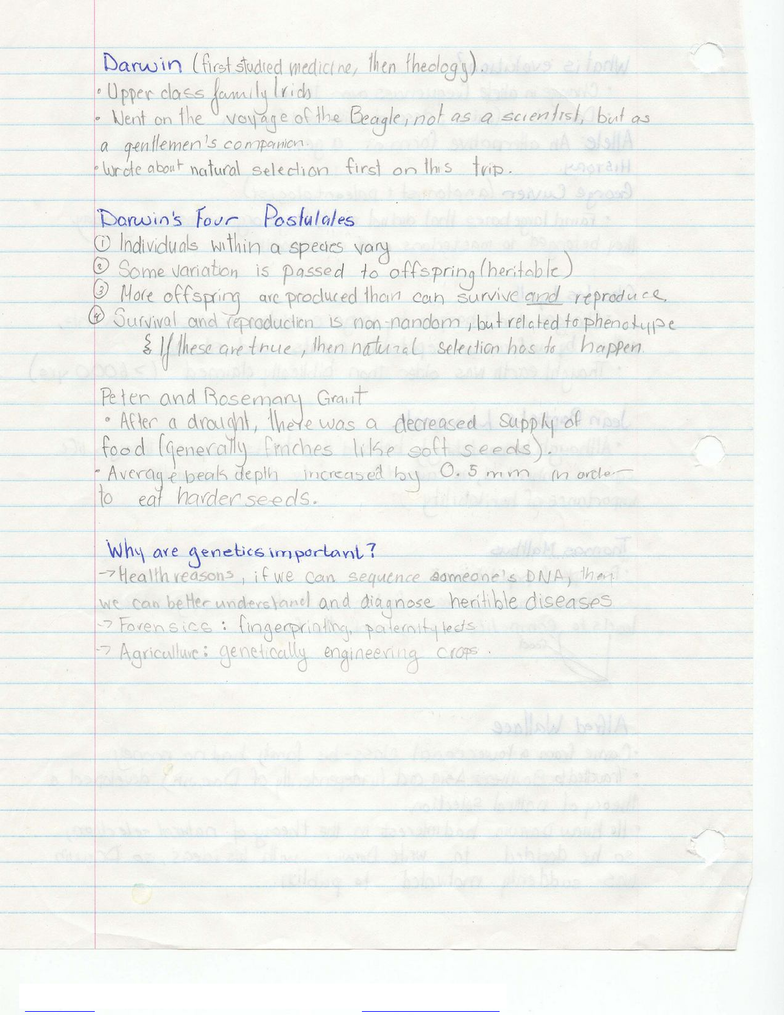 Darwin (first studied medicine, then theology).
• Upper class family/rich
• Went on the voyage of the Beagle, not as a scientist, but as
a gentlemen's companion.
• Wrote about natural selection first on this trip.
Darwin's Four Postulates
① Individuals within a species vary
② Some variation is passed to offspring (heritable)
③ More offspring are produced than can survive and reproduce.
④ Survival and reproduction is non-random, but related to phenotype
If these are true, then natural selection has to happen
Peter and Rosemary Grant
• After a drought, there was a decreased supply of
food (generally finches like soft seeds).
• Average beak depth increased by 0.5 mm in order
to eat harder seeds.
Why are genetics important?
→ Health reasons, if we can sequence someone's DNA, then
we can better understand and diagnose heritible diseases
→ Forensics: fingerprinting, paternity tests
→ Agriculture: genetically engineering crops.